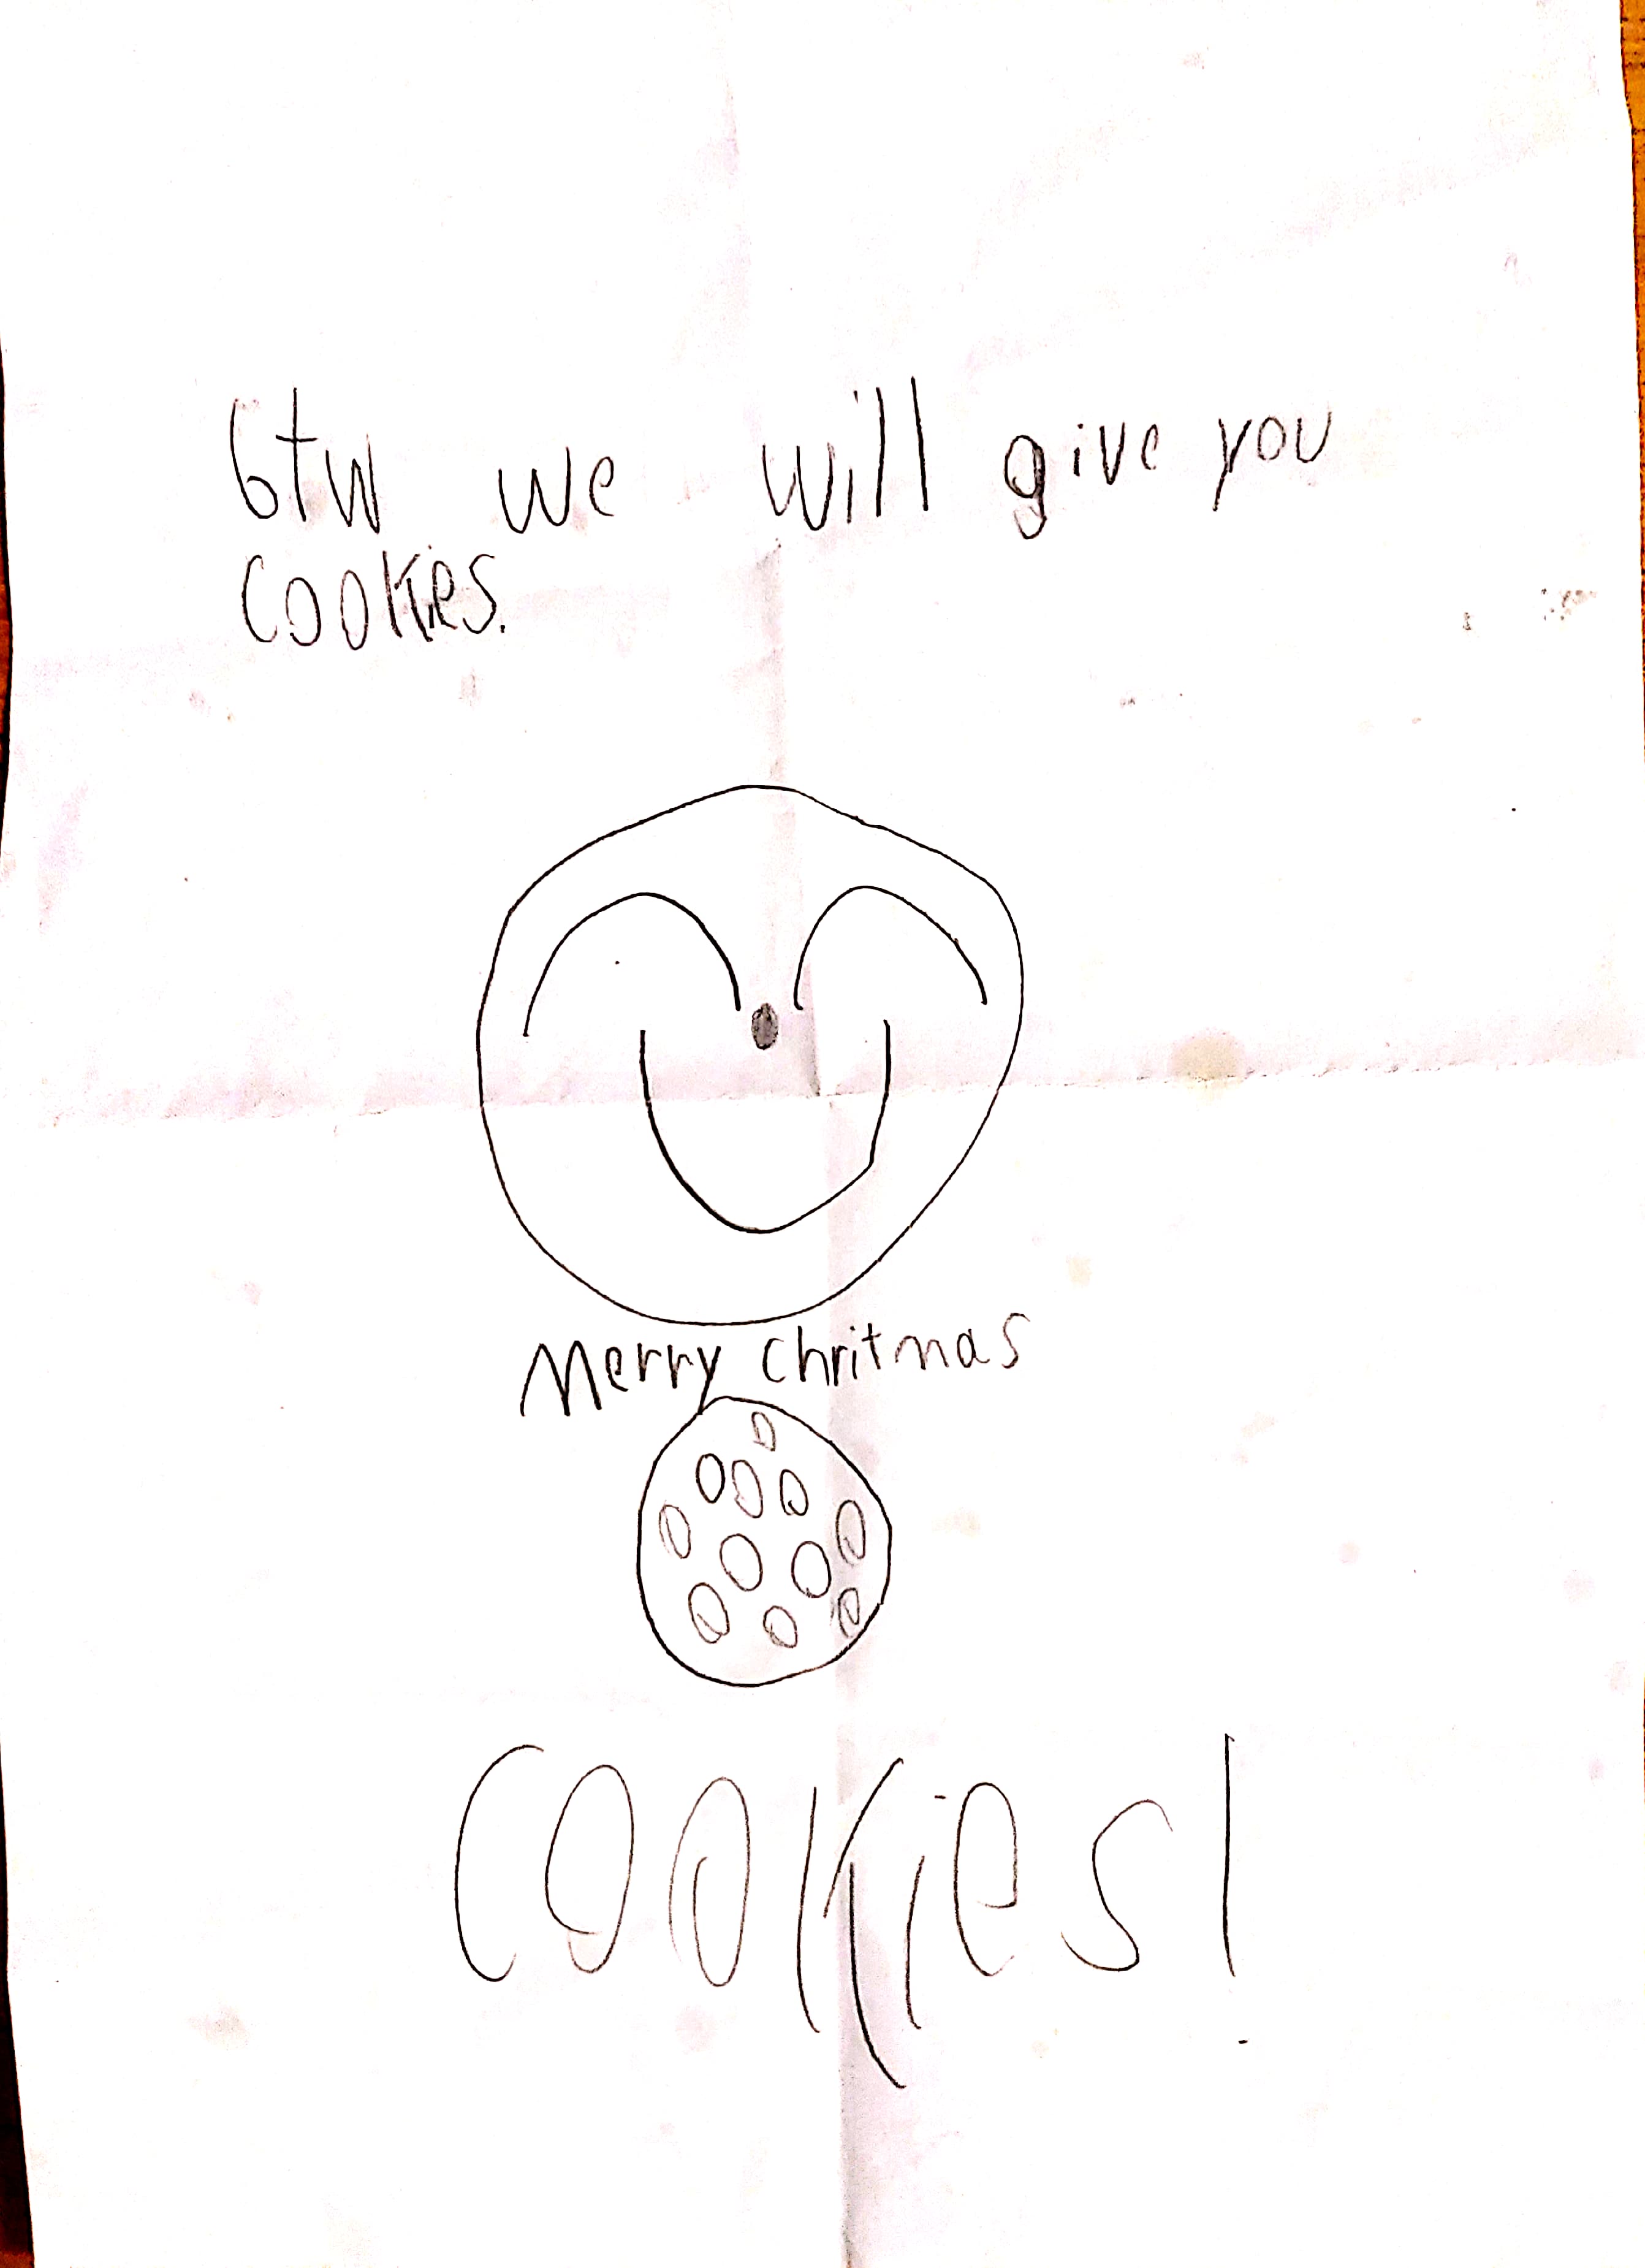 btw we will give you
cookies.
Merry chritmas
cookies!